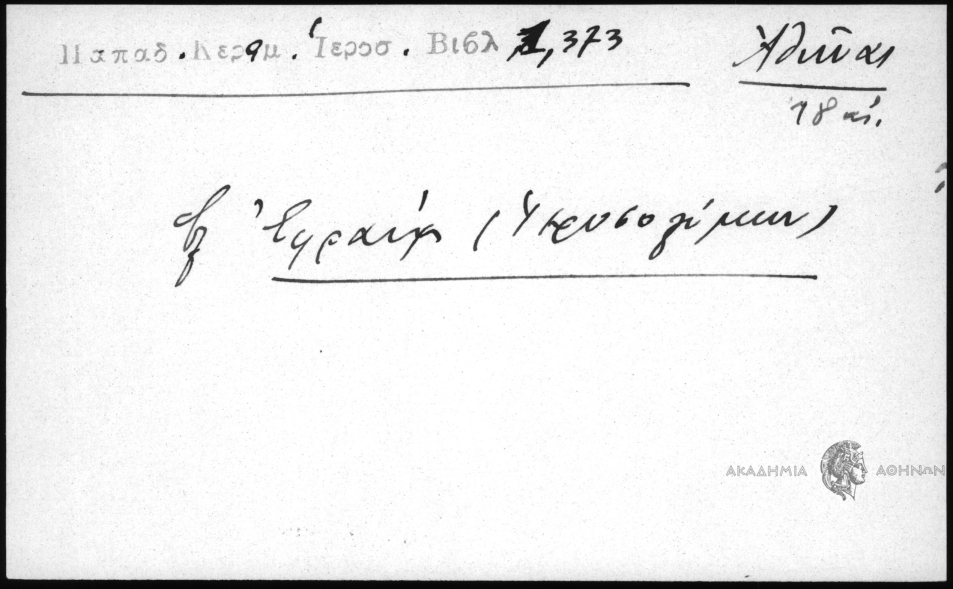 Παπαδ. Κεραμ. Ἱεροσ. Βιβλ 1,373
Ἀθῆναι
18 αἰ.
βλ Ἐφραίμ (Ἱεροσολύμων)
ΑΚΑΔΗΜΙΑ ΑΘΗΝΩΝ